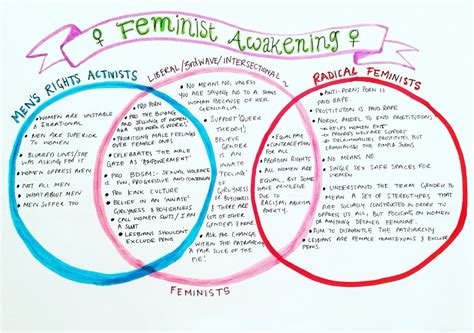 ♀ Feminist Awakening ♀
MEN'S RIGHTS ACTIVISTS
LIBERAL/3RD WAVE/INTERSECTIONAL
RADICAL FEMINISTS
• WOMEN ARE UNSTABLE
& IRRATIONAL
• MEN ARE SUPERIOR
TO WOMEN
• BLURRED LINES/SHE
WAS ASKING FOR IT
• WOMEN OPRESS MEN
• NOT ALL MEN
• WHAT ABOUT MEN
• MEN SUFFER TOO
• PRO PORN
• PRO THE BUYING
AND SELLING OF WOMEN
AKA 'SEX WORK IS WORK'!
• PRIORITISING MALE FEELINGS
OVER FEMALE ONES
• CELEBRATES THE MALE
GAZE AS 'EMPOWERMENT'
• PRO BDSM: SEXUAL VIOLENCE
IS FUN, PROGRESSIVE AND
• PRO KINK CULTURE
• BELIEF IN AN 'INNATE'
GIRLYNESS OR BOYISHNESS
• CALL WOMEN SLUTS / IAN
A SLUT
• LESBIANS SHOULDN'T
EXCLUDE PENIS
• NO MEANS NO, UNLESS
YOU ARE SAYING NO TO A
WOMAN BECAUSE OF HER
GENITALIA.
• SUPPORT 'QUEER
THEORY';
BELIEF
GENDER IS
AN INNATE
'FEELING'
OF GIRLYNESS
OR BOYISHNESS
& THERE ARE
LOTS OF OTHER
GENDERS)
• ASK FOR CHANGE
WITHIN THE PATRIARCHY
A FAIR SLICE OF THE
PIE!
• EQUAL PAY
• CONTRACEPTION
FOR ALL
• ABORTION RIGHTS
• ALL WOMEN ARE
EQUAL, BUT SOME
HAVE LESS
PRIVILEGE DUE TO
RACISM, ABLEISM,
POVERTY.
• ANTI-PORN: PORN IS
PAID RAPE.
• PROSTITUTION IS PAID RAPE
• NORDIC MODEL TO END PROSTITUTION.
HELPS WOMEN EXIT
PROVIDES WELFARE SUPPORT
DECRIMINALISES PROSTITUTES, BUT
CRIMINALISES THE PIMPS & JOHNS
• NO MEANS NO.
• SINGLE SEX SAFE SPACES FOR
WOMEN
• UNDERSTAND THE TERM GENDER TO
MEAN A SET OF STEREOTYPES THAT
ARE SOCIALLY CONSTRUCTED IN ORDER TO
OPPRESS US ALL, BUT FOCUSES ON WOMEN
OR ANYTHING DEEMED FEMININE.
• AIM TO DISMANTLE THE PATRIARCHY
• LESBIANS ARE FEMALE HOMOSEXUALS & EXCLUDE
PENIS.
FEMINISTS